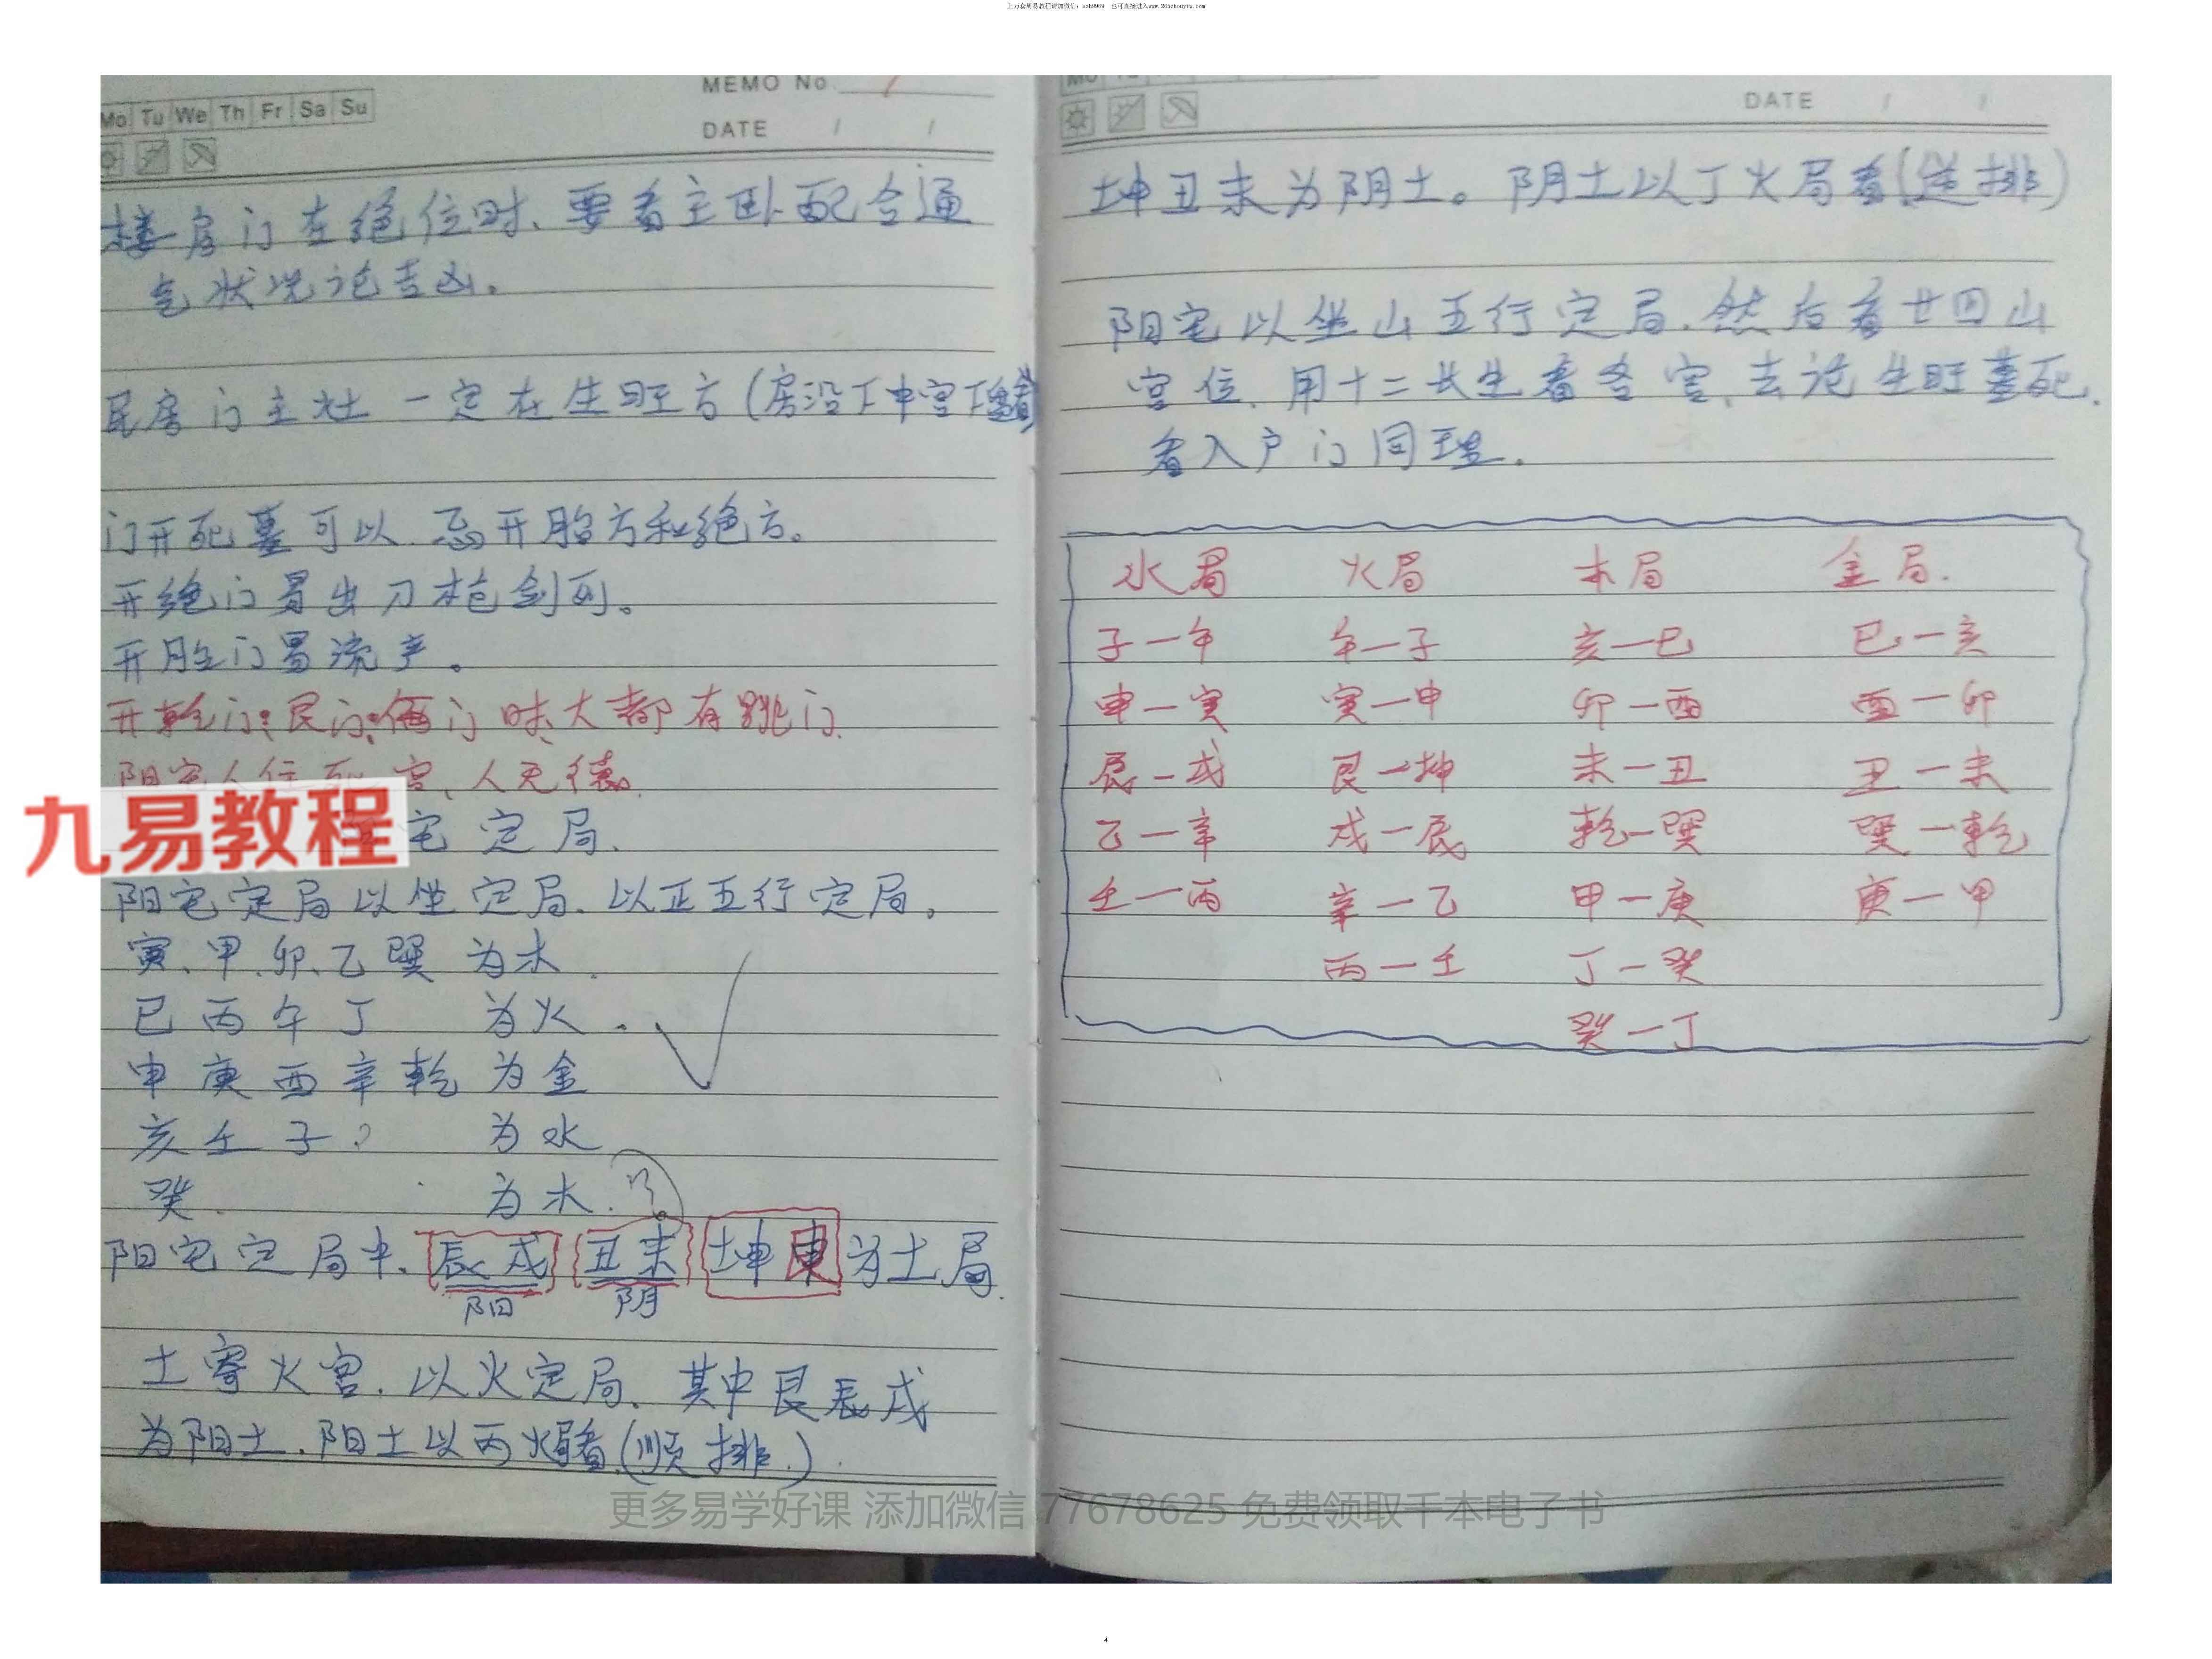 上万套周易教程请加微信：ssh9969 也可直接进入www.265zhouyiw.com
MEMO No.
Mo Tu We Th Fr Sa Su
DATE / /
楼房门在绝位时、要看主卧配合通
气状况论吉凶。
民房门主灶一定在生旺方(房没下中宫下
门开死墓可以.忌开胎方和绝方。
开绝门易出刀枪剑
开胎门易流产。
开乾门:艮门:俩门时、大都有跳门.
阳宅人住死宫、人无德.
宅定局.
阳宅定局以坐定局.以正五行定局。
寅、甲.卯、乙巽 为木.
巳丙午丁 为火.
申庚酉辛乾 为金
亥壬子? 为水
癸. 为木.??
阳宅定局中、辰戌 丑未 坤 为土局.
阳 阴
土寄火宫.以火定局.其中艮辰戌
为阳土.阳土以丙火局看.(顺排.)
DATE / /
坤丑未为阴土。阴土以丁火局看(逆排)
阳宅以坐山五行定局.然后看廿四山
宫位.用十二长生看各宫、去论生旺墓死.
看入户门同理.
水局 火局 木局 金局.
子一午 午一子 亥一巳 巳一亥
申一寅 寅一申 卯一酉 酉一卯
辰一戌 艮一坤 未一丑 丑一未
乙一辛 戌一辰 乾一巽 巽一乾
壬一丙 辛一乙 甲一庚 庚一甲
丙一壬 丁一癸
癸一丁
九易教程
更多易学好课 添加微信 77678625 免费领取千本电子书
4